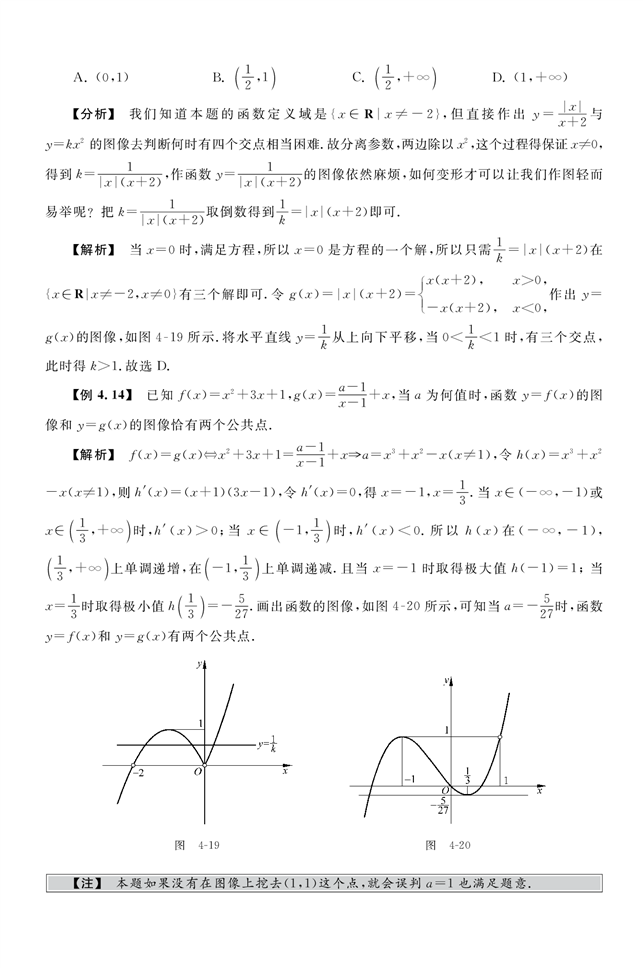 A. (0,1)  B. (1/2,1)  C. (1/2,+∞)  D. (1,+∞)
【分析】 我们知道本题的函数定义域是{x∈R|x≠-2},但直接作出 y=|x|/(x+2) 与
y=kx² 的图像去判断何时有四个交点相当困难.故分离参数,两边除以 x²,这个过程得保证 x≠0,
得到 k=1/(|x|(x+2)),作函数 y=1/(|x|(x+2))的图像依然麻烦,如何变形才可以让我们作图轻而
易举呢? 把 k=1/(|x|(x+2))取倒数得到 1/k=|x|(x+2)即可.
【解析】 当 x=0 时,满足方程,所以 x=0 是方程的一个解,所以只需 1/k=|x|(x+2)在
{x∈R|x≠-2,x≠0}有三个解即可.令 g(x)=|x|(x+2)={x(x+2), x>0, -x(x+2), x<0, 作出 y=
g(x)的图像,如图 4-19 所示.将水平直线 y=1/k 从上向下平移,当 0<1/k<1 时,有三个交点,
此时得 k>1.故选 D.
【例 4.14】 已知 f(x)=x²+3x+1,g(x)=(a-1)/(x-1)+x,当 a 为何值时,函数 y=f(x)的图
像和 y=g(x)的图像恰有两个公共点.
【解析】 f(x)=g(x)⇔x²+3x+1=(a-1)/(x-1)+x⇒a=x³+x²-x(x≠1),令 h(x)=x³+x²
-x(x≠1),则 h′(x)=(x+1)(3x-1),令 h′(x)=0,得 x=-1,x=1/3.当 x∈(-∞,-1)或
x∈(1/3,+∞)时,h′(x)>0;当 x∈(-1,1/3)时,h′(x)<0.所以 h(x)在(-∞,-1),
(1/3,+∞)上单调递增,在(-1,1/3)上单调递减.且当 x=-1 时取得极大值 h(-1)=1;当
x=1/3时取得极小值 h(1/3)=-5/27.画出函数的图像,如图 4-20 所示,可知当 a=-5/27时,函数
y=f(x)和 y=g(x)有两个公共点.
y
1
y=1/k
-2
O
x
图 4-19
y
1
-1
O
1/3
1
x
-5/27
图 4-20
【注】 本题如果没有在图像上挖去(1,1)这个点,就会误判 a=1 也满足题意.